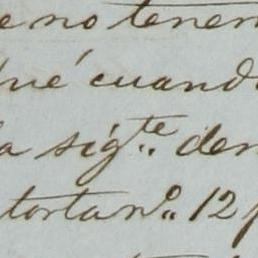 e no tenem
ué cuand
la sigte. den
torta no. 12